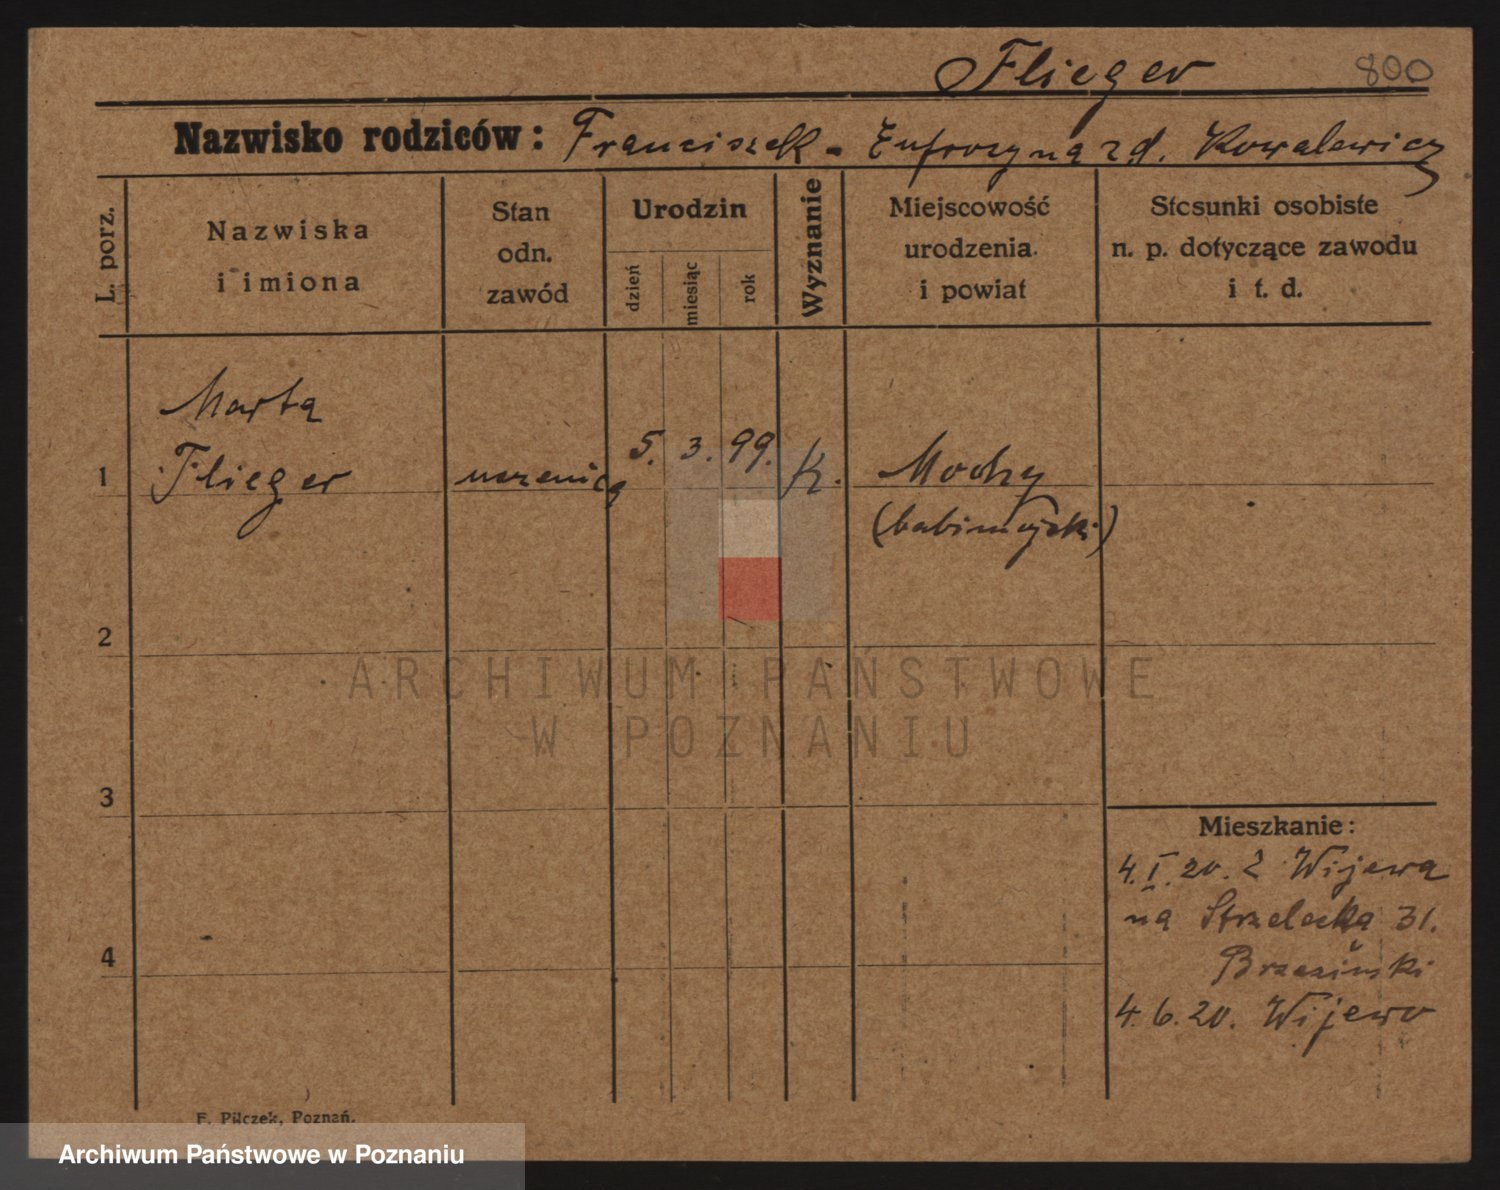 Flieger 800
Nazwisko rodziców: Franciszek - Eufrozyna zd. Kowalewicz
L. porz.
Nazwiska
i imiona
Stan
odn.
zawód
Urodzin
dzień
miesiąc
rok
Wyznanie
Miejscowość
urodzenia
i powiat
Stosunki osobiste
n. p. dotyczące zawodu
i t. d.
Marta
1 Flieger uczenica 5. 3. 99. k. Mochy
(babimojski)
2
3
4
ARCHIWUM PAŃSTWOWE
W POZNANIU
Mieszkanie:
4. I. 20. z Wijewa
na Strzelecka 31.
Brzeziński
4. 6. 20. Wijewo
F. Pilczek, Poznań.
Archiwum Państwowe w Poznaniu